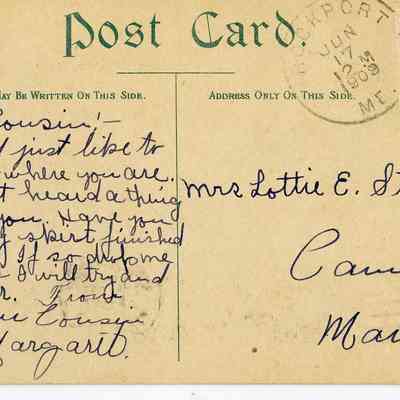 Post Card.
MAY BE WRITTEN ON THIS SIDE.
ADDRESS ONLY ON THIS SIDE.
CKPORT
JUN
17
12 M
1909
ME.
Cousin,-
just like to
where you are.
heard a thing
you. Have you
skirt finished
If so drop me
I will try and
From
Cousin,
Margaret.
Mrs Lottie E. St
Cam
Mai